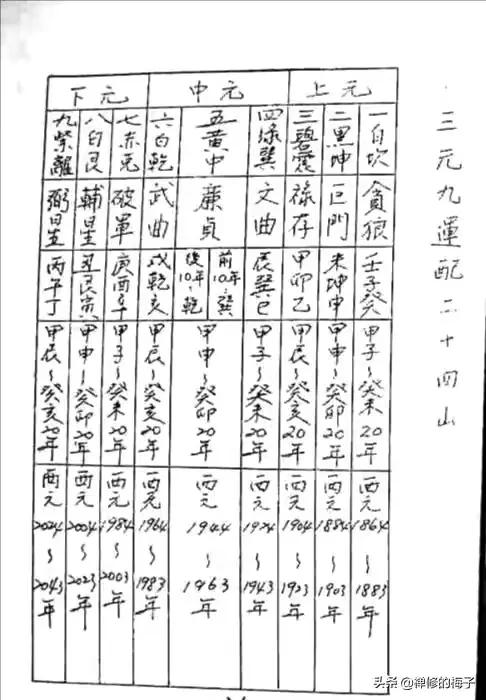 三元九運配二十四山
上元
一白坎
貪狼
壬子癸
甲子~癸未20年
西元1864~1883年
二黑坤
巨門
未坤申
甲申~癸卯20年
西元1884~1903年
三碧震
祿存
甲卯乙
甲辰~癸亥20年
西元1904~1923年
中元
四綠巽
文曲
辰巽巳
甲子~癸未20年
西元1924~1943年
五黃中
廉貞
前10年:巽
後10年:乾
甲申~癸卯20年
西元1944~1963年
六白乾
武曲
戌乾亥
甲辰~癸亥20年
西元1964~1983年
下元
七赤兌
破軍
庚酉辛
甲子~癸未20年
西元1984~2003年
八白艮
輔星
丑艮寅
甲申~癸卯20年
西元2004~2023年
九紫離
弼星
丙午丁
甲辰~癸亥20年
西元2024~2043年
头条 @禅修的梅子